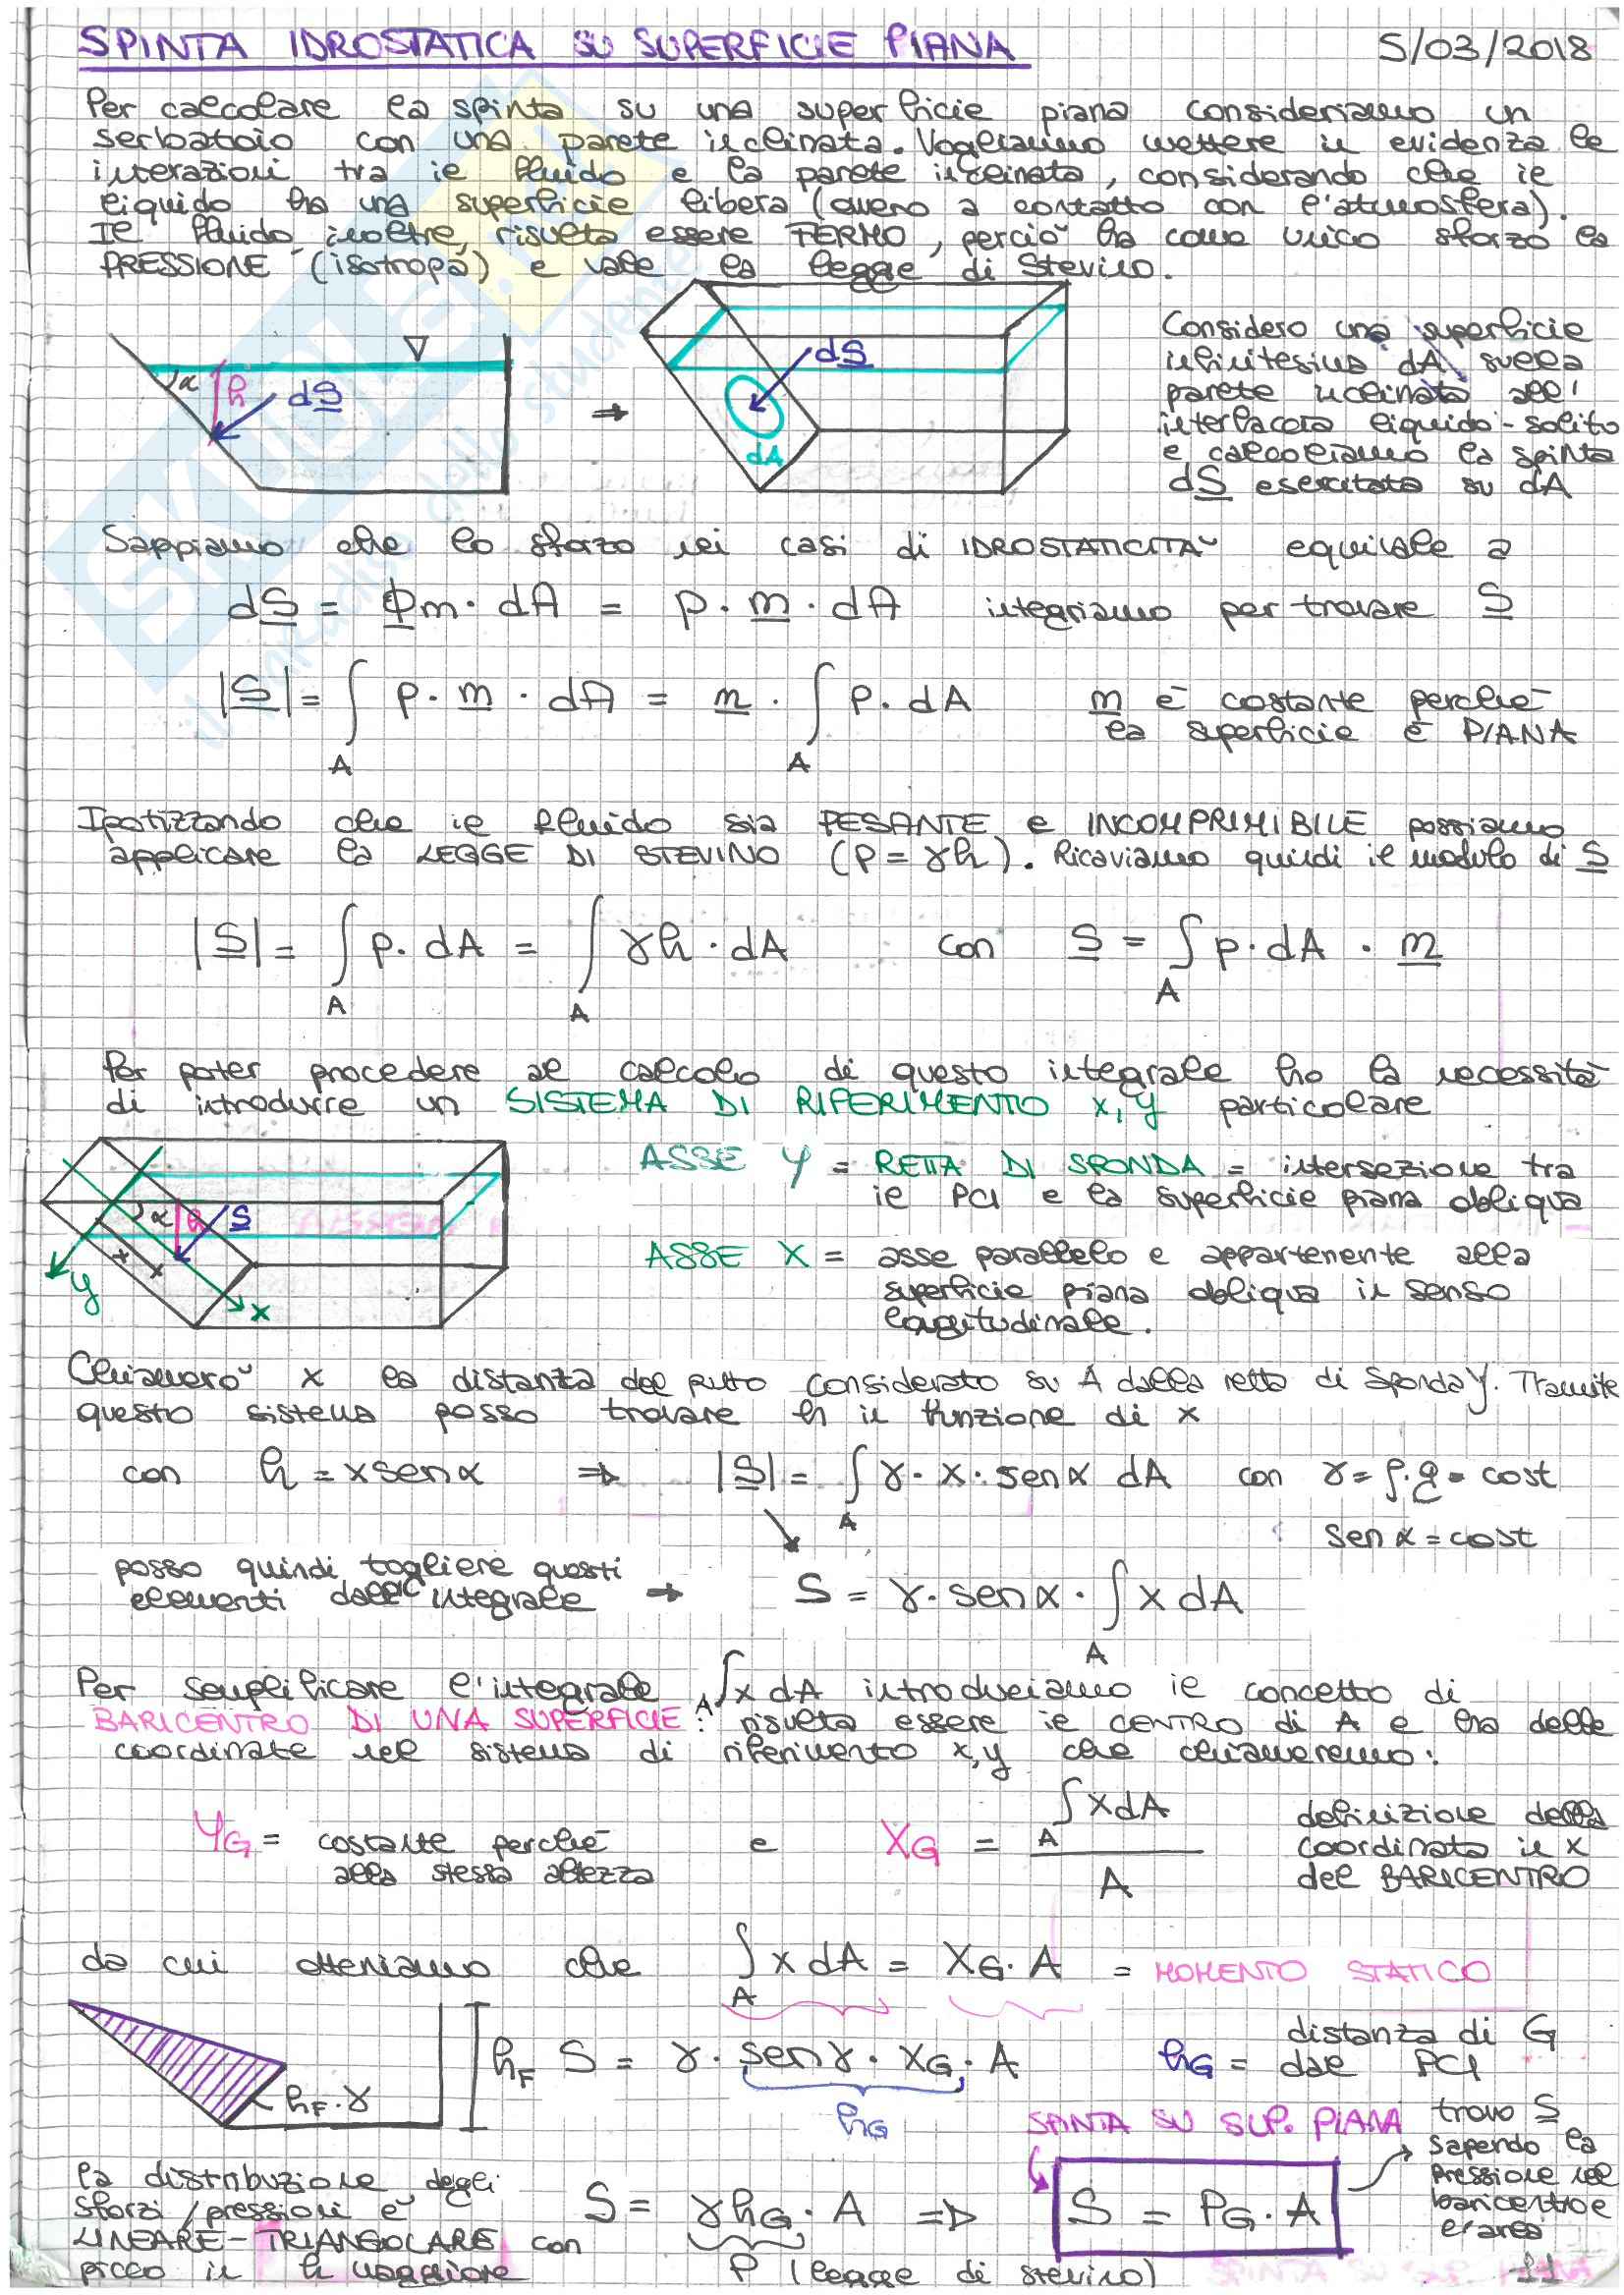 SPINTA IDROSTATICA SU SUPERFICIE PIANA 5/03/2018
Per calcolare la spinta su una superficie piana consideriamo un
serbatoio con una parete inclinata. Vogliamo mettere in evidenza le
interazioni tra il fluido e la parete inclinata, considerando che il
liquido ha una superficie libera (ovvero a contatto con l'atmosfera).
Il fluido, inoltre, risulta essere FERMO, perciò ha come unico sforzo la
PRESSIONE (isotropa) e vale la legge di Stevino.
α h dS
⇒
dS
dA
Considero una superficie
infinitesima dA sulla
parete inclinata all'
interfaccia liquido-solito
e calcoliamo la spinta
dS esercitata su dA
Sappiamo che lo sforzo nei casi di IDROSTATICITA' equivale a
dS = Φn · dA = p · n · dA integriamo per trovare S
|S| = ∫A p · n · dA = n · ∫A p · dA n è costante perchè
la superficie è PIANA
Ipotizzando che il fluido sia PESANTE e INCOMPRIMIBILE possiamo
applicare la LEGGE DI STEVINO (P = γh). Ricaviamo quindi il modulo di S
|S| = ∫A p · dA = ∫A γh · dA con S = ∫A p · dA · n
Per poter procedere al calcolo di questo integrale ho la necessità
di introdurre un SISTEMA DI RIFERIMENTO x, y particolare
α h S
x
y x
ASSE Y = RETTA DI SPONDA = intersezione tra
il PCI e la superficie piana obliqua
ASSE X = asse parallelo e appartenente alla
superficie piana obliqua in senso
longitudinale.
Chiamerò x la distanza del punto considerato su A dalla retta di sponda Y. Tramite
questo sistema posso trovare h in funzione di x
con h = x senα ⇒ |S| = ∫A γ · x · senα dA con γ = ρ·g = cost
senα = cost
posso quindi togliere questi
elementi dall'integrale → S = γ · senα · ∫A x dA
Per semplificare l'integrale A∫x dA introduciamo il concetto di
BARICENTRO DI UNA SUPERFICIE: risulta essere il CENTRO di A e ha delle
coordinate nel sistema di riferimento x,y che chiameremo:
YG = costante perchè
alla stessa altezza
e XG = A∫x dA / A
definizione della
coordinata in x
del BARICENTRO
da cui otteniamo che ∫A x dA = XG · A = MOMENTO STATICO
hF · γ
hF
S = γ · senγ · XG · A
hG
hG = distanza di G
dal PCI
SPINTA SU SUP. PIANA
la distribuzione degli
sforzi/pressioni è
LINEARE-TRIANGOLARE con
picco in h maggiore
S = γhG · A ⇒ S = PG · A
P (legge di stevino)
trovo S
sapendo la
pressione nel
baricentro e
l'area
11
SKUOLA